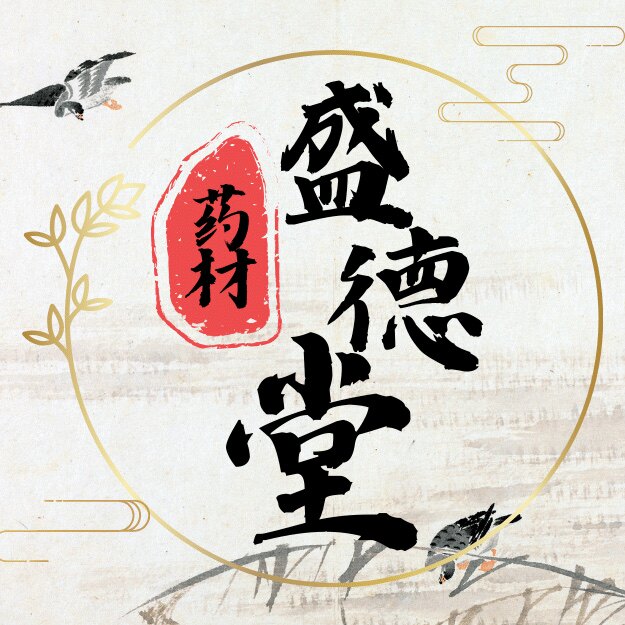 盛德堂
药材